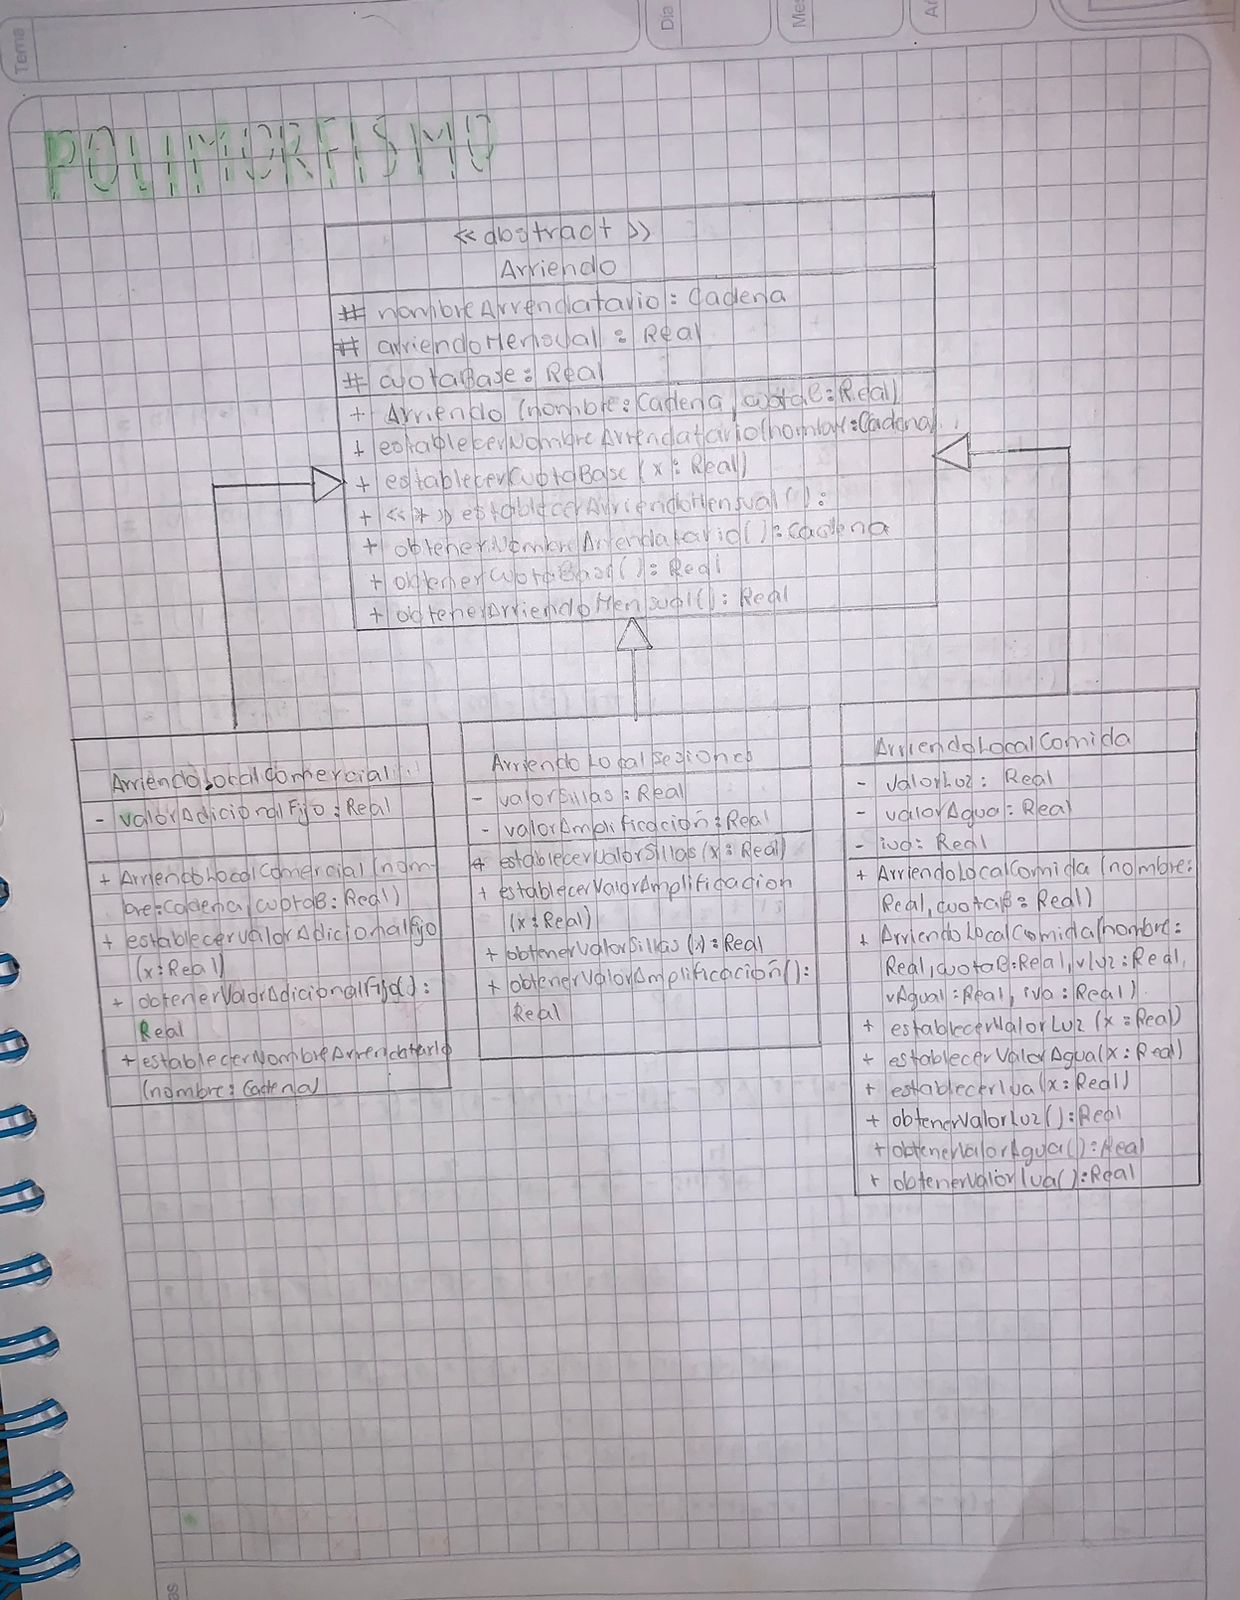 Tema
Día
Mes
POLIMORFISMO
<< abstract >>
Arriendo
# nombreArrendatario : Cadena
# arriendoMensual : Real
# cuotaBase : Real
+ Arriendo (nombre : Cadena, cuotaB : Real)
+ establecerNombreArrendatario(nombre : Cadena)
+ establecerCuotaBase (x : Real)
+ << * >> establecerArriendoMensual ( ) :
+ obtenerNombreArrendatario( ) : Cadena
+ obtenerCuotaBase( ) : Real
+ obtenerArriendoMensual( ) : Real
ArriendoLocalComercial
- valorAdicionalFijo : Real
+ ArriendoLocalComercial (nom-
bre : Cadena, cuotaB : Real)
+ establecerValorAdicionalFijo
(x : Real)
+ obtenerValorAdicionalFijo( ) :
Real
+ establecerNombreArrendatario
(nombre : Cadena)
ArriendoLocalSesiones
- valorSillas : Real
- valorAmplificación : Real
+ establecerValorSillas (x : Real)
+ establecerValorAmplificacion
(x : Real)
+ obtenerValorSillas (x) : Real
+ obtenerValorAmplificación( ) :
Real
ArriendoLocalComida
- valorLuz : Real
- valorAgua : Real
- iva : Real
+ ArriendoLocalComida (nombre :
Real, cuotaB : Real)
+ ArriendoLocalComida(nombre :
Real, cuotaB : Real, vluz : Real,
vAgua : Real, iva : Real)
+ establecerValorLuz (x : Real)
+ establecerValorAgua(x : Real)
+ establecerIva (x : Real)
+ obtenerValorLuz ( ) : Real
+ obtenerValorAgua( ) : Real
+ obtenerValorIva( ) : Real